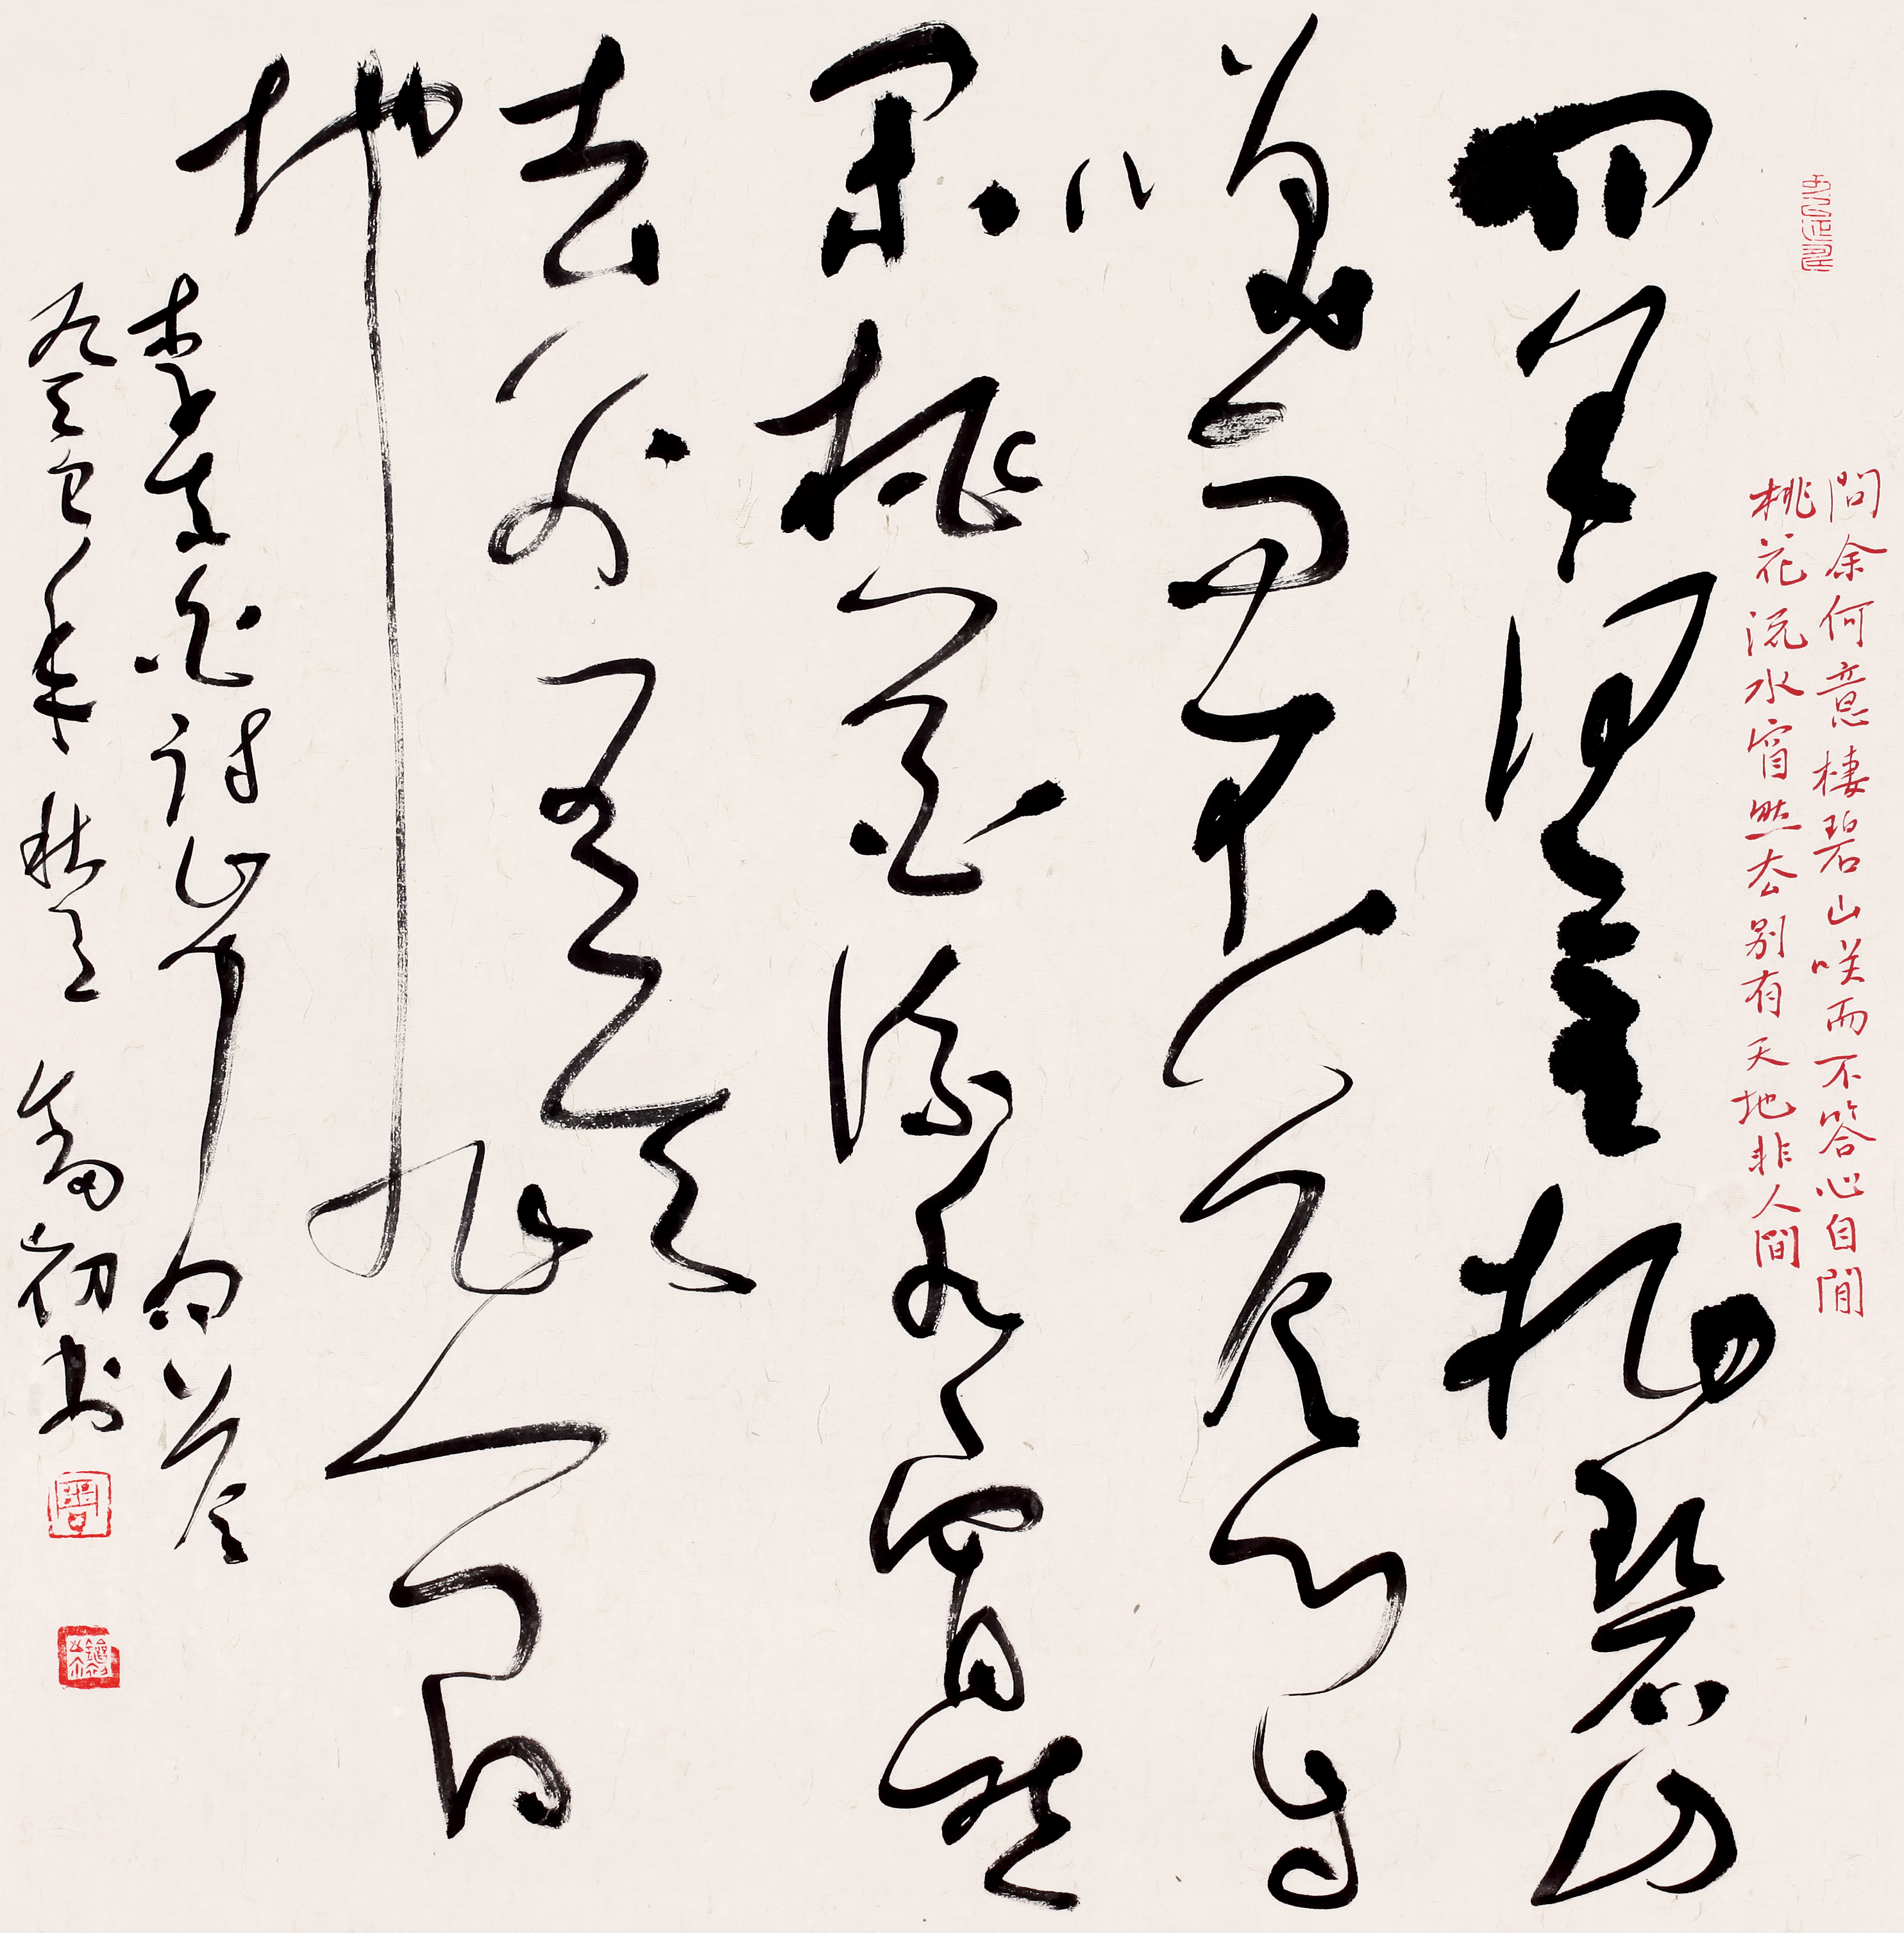 問余何意棲碧山咲而不答心自閒
桃花流水窅然去别有天地非人間
問余何意栖碧山
笑而不答心自
閑桃花流水窅然
去别有天
地非人間
李 詩山中問答
癸巳年秋 初書